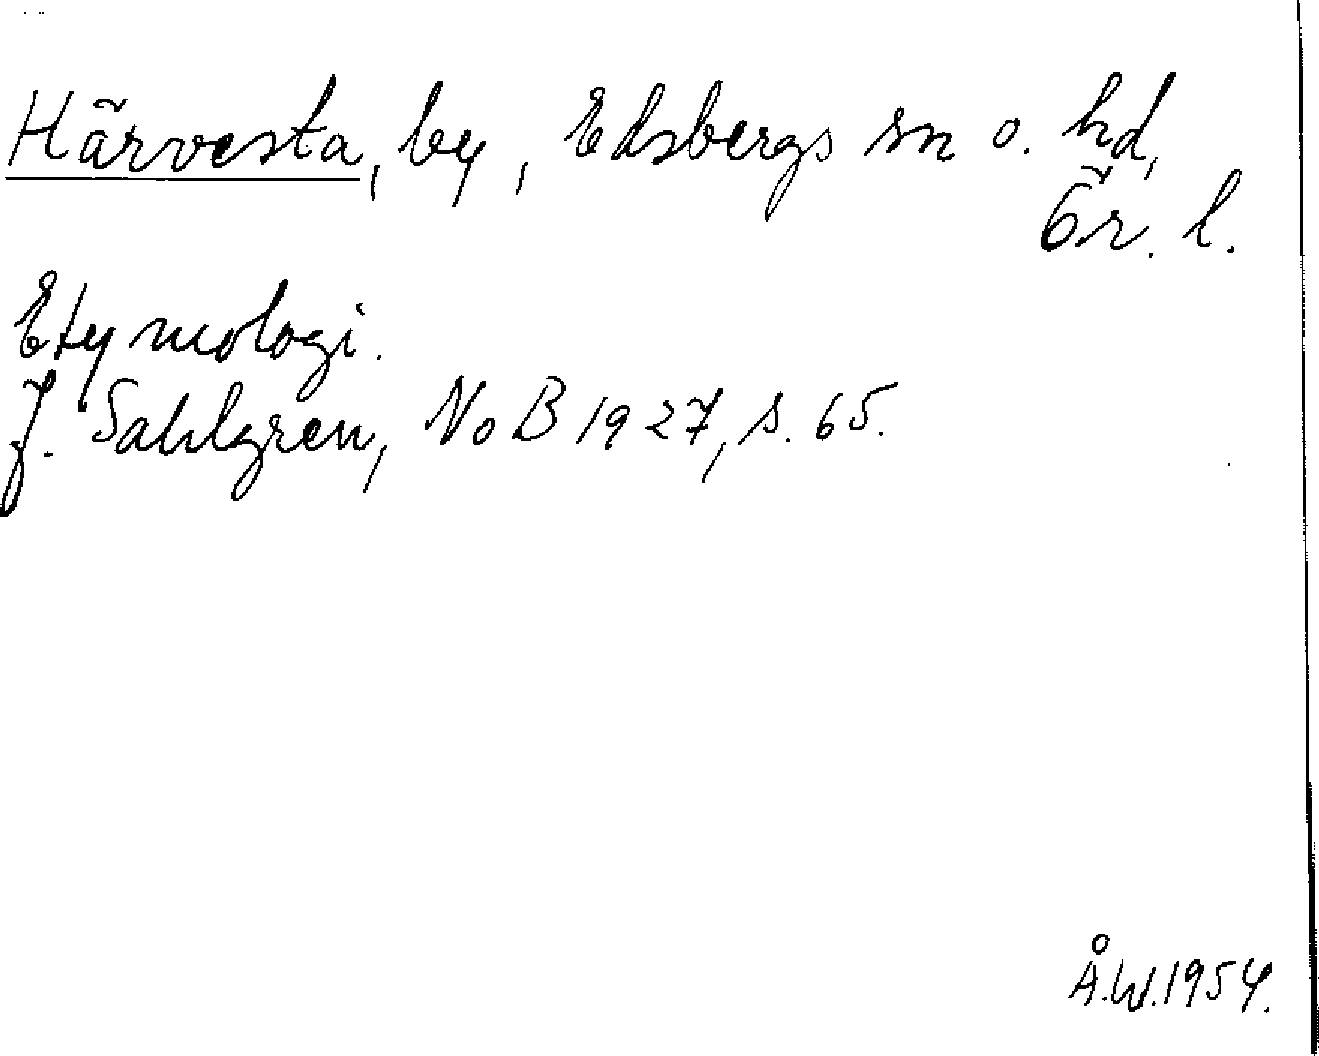 Härvesta, by, Edsbergs sn o. hd,
Ör. l.
Etymologi.
J. Sahlgren, NoB 1927, s. 65.
Å.W.1954.